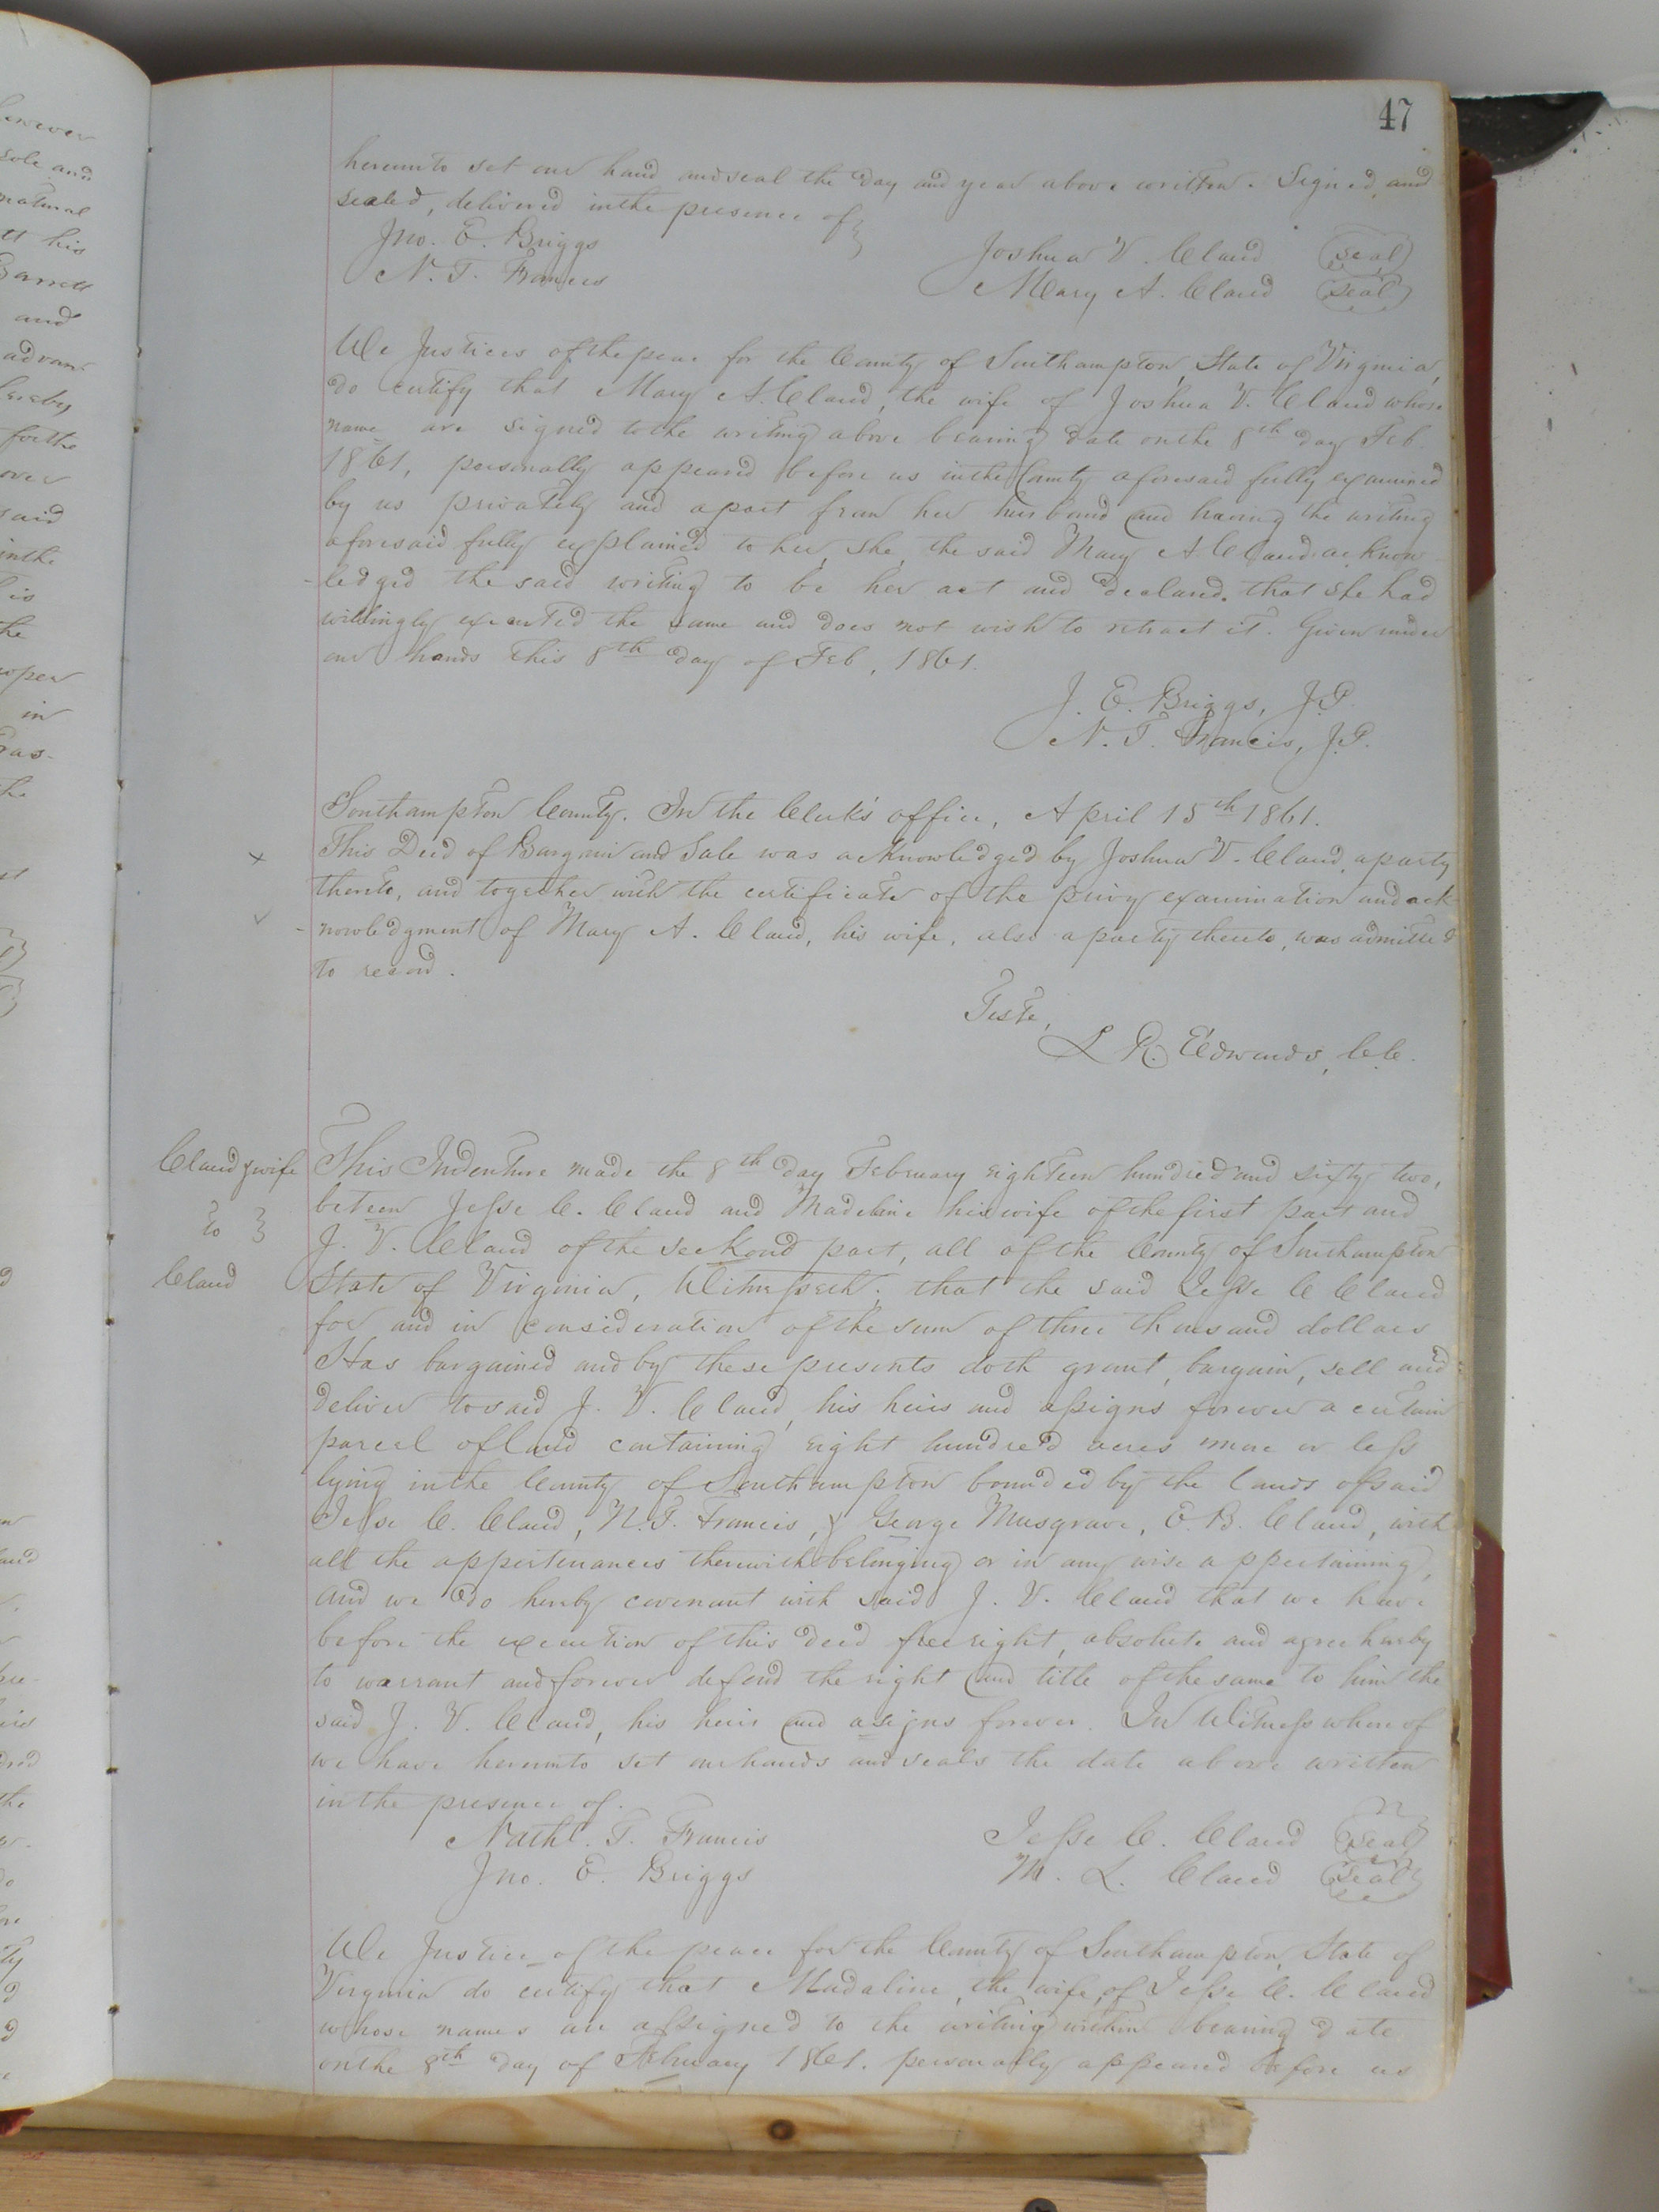 47
hereunto set our hand and seal the day and year above written. Signed and
sealed, delivered in the presence of
Jno. E. Briggs Joshua V. Claud (seal)
N. T. Francis Mary A. Claud (seal)
We Justices of the peace for the County of Southampton, State of Virginia,
do certify that Mary A. Claud, the wife of Joshua V. Claud whose
name are signed to the writing above bearing date on the 8th day Feb.
1861, personally appeared before us in the County aforesaid fully examined
by us privately and apart from her husband and having the writing
aforesaid fully explained to her, she, the said Mary A Claud acknow
-ledged the said writing to be her act and declared. that she had
willingly executed the same and does not wish to retract it. Given under
our hands this 8th day of Feb, 1861.
J. E. Briggs, J.P.
N. T. Francis, J.P.
Southampton County. In the Clerk's office, April 15th 1861.
This Deed of Bargain and Sale was acknowledged by Joshua V. Claud, a party
thereto, and together with the certificate of the privy examination and ack
-nowledgment of Mary A. Claud, his wife, also a party thereto, was admitted
to record.
Teste,
L R. Edwards, C.C.
Claud & wife
to
Claud
This Indenture made the 8th day February eighteen hundred and sixty two,
beteen Jesse C. Claud and Madeline his wife of the first part and
J. V. Claud of the seckond part, all of the County of Southampton
State of Virginia, Witnesseth; that the said Jesse C Claud
for and in consideration of the sum of three thousand dollars
Has bargained and by these presents doth grant, bargain, sell and
deliver to said J. V. Claud, his heirs and assigns forever a certain
parcel of land containing eight hundred acres more or less
lying in the County of Southampton bounded by the lands of said
Jesse C. Claud, N. T. Francis, & George Musgrave, E. B. Claud, with
all the appertenances therewith belonging or in any wise appertaining,
and we do hereby covenant with said J. V. Claud that we have
before the execution of this deed free right, absolute and agree hereby
to warrant and forever defend the right and title of the same to him the
said J. V. Claud, his heirs and asigns forever. In Witness whereof
we have hereunto set our hands and seals the date above written
in the presence of.
Nathl. T. Francis Jesse C. Claud (seal)
Jno. E. Briggs M. L. Claud (seal)
We Justice of the peace for the County of Southampton, State of
Virginia do certify that Madaline, the wife, of Jesse C. Claud
whose names are assigned to the writing within bearing date
on the 8th day of February 1861. personally appeared before us